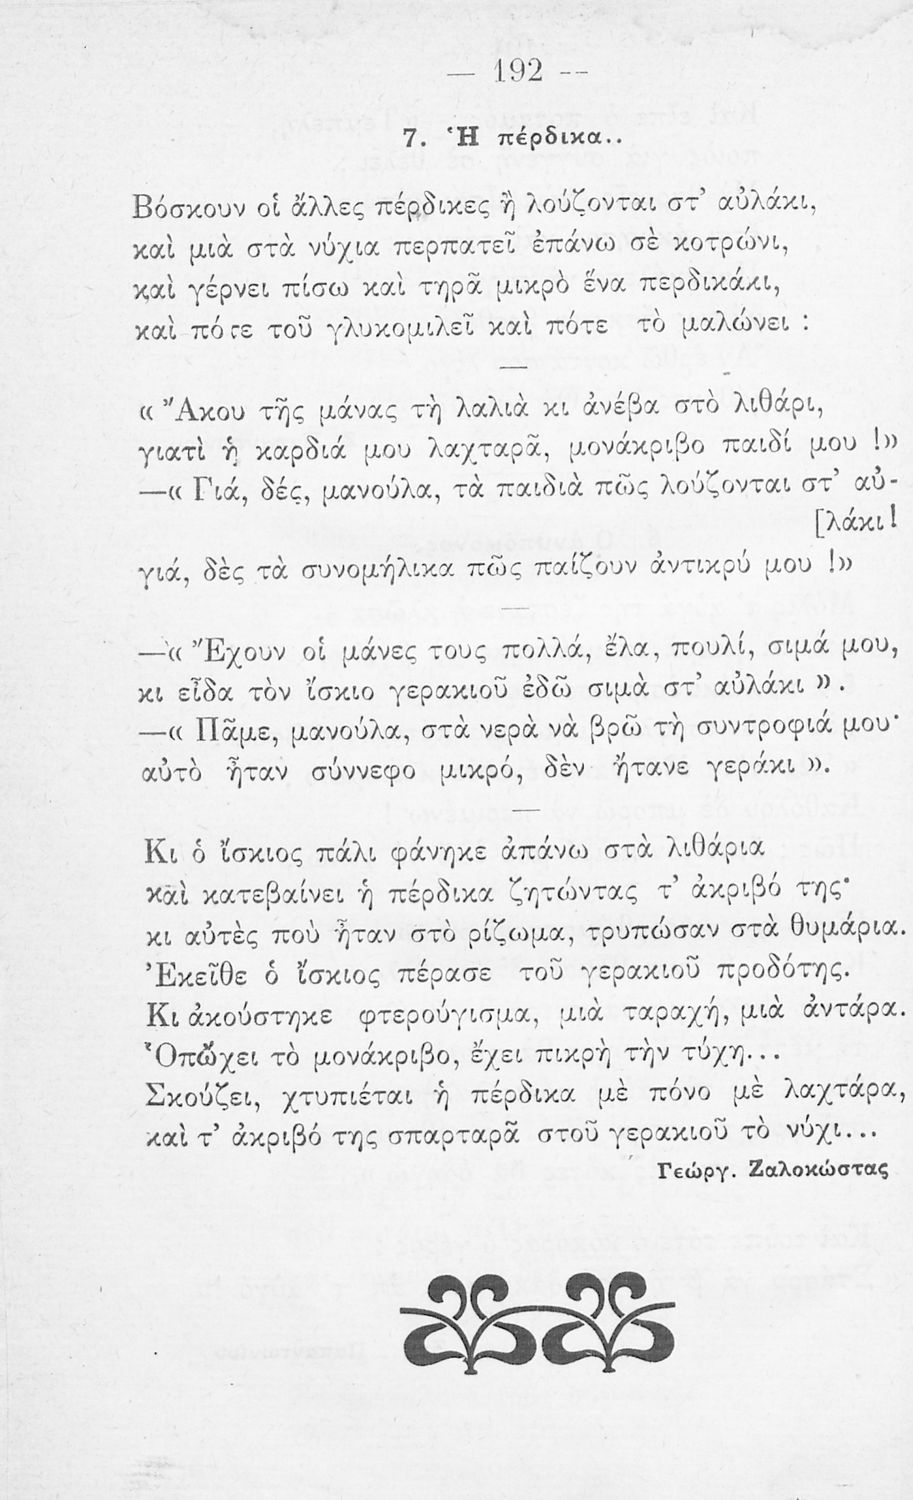 — 192 —
7. Ἡ πέρδικα..
Βόσκουν οἱ ἄλλες πέρδικες ἢ λούζονται στ’ αὐλάκι,
καὶ μιὰ στὰ νύχια περπατεῖ ἐπάνω σὲ κοτρώνι,
καὶ γέρνει πίσω καὶ τηρᾶ μικρὸ ἕνα περδικάκι,
καὶ πότε τοῦ γλυκομιλεῖ καὶ πότε τὸ μαλώνει :
—
« Ἄκου τῆς μάνας τὴ λαλιὰ κι ἀνέβα στὸ λιθάρι,
γιατὶ ἡ καρδιά μου λαχταρᾶ, μονάκριβο παιδί μου !»
—« Γιά, δές, μανούλα, τὰ παιδιὰ πῶς λούζονται στ’ αὐ-
[λάκι!
γιά, δὲς τὰ συνομήλικα πῶς παίζουν ἀντικρύ μου !»
—
—« Ἔχουν οἱ μάνες τους πολλά, ἔλα, πουλί, σιμά μου,
κι εἶδα τὸν ἴσκιο γερακιοῦ ἐδῶ σιμὰ στ’ αὐλάκι ».
—« Πᾶμε, μανούλα, στὰ νερὰ νὰ βρῶ τὴ συντροφιά μου·
αὐτὸ ἦταν σύννεφο μικρό, δὲν ἤτανε γεράκι ».
—
Κι ὁ ἴσκιος πάλι φάνηκε ἀπάνω στὰ λιθάρια
καὶ κατεβαίνει ἡ πέρδικα ζητώντας τ’ ἀκριβό της·
κι αὐτὲς ποὺ ἦταν στὸ ρίζωμα, τρυπώσαν στὰ θυμάρια.
Ἐκεῖθε ὁ ἴσκιος πέρασε τοῦ γερακιοῦ προδότης.
Κι ἀκούστηκε φτερούγισμα, μιὰ ταραχή, μιὰ ἀντάρα.
Ὁπὤχει τὸ μονάκριβο, ἔχει πικρὴ τὴν τύχη...
Σκούζει, χτυπιέται ἡ πέρδικα μὲ πόνο μὲ λαχτάρα,
καὶ τ’ ἀκριβό της σπαρταρᾶ στοῦ γερακιοῦ τὸ νύχι...
Γεώργ. Ζαλοκώστας